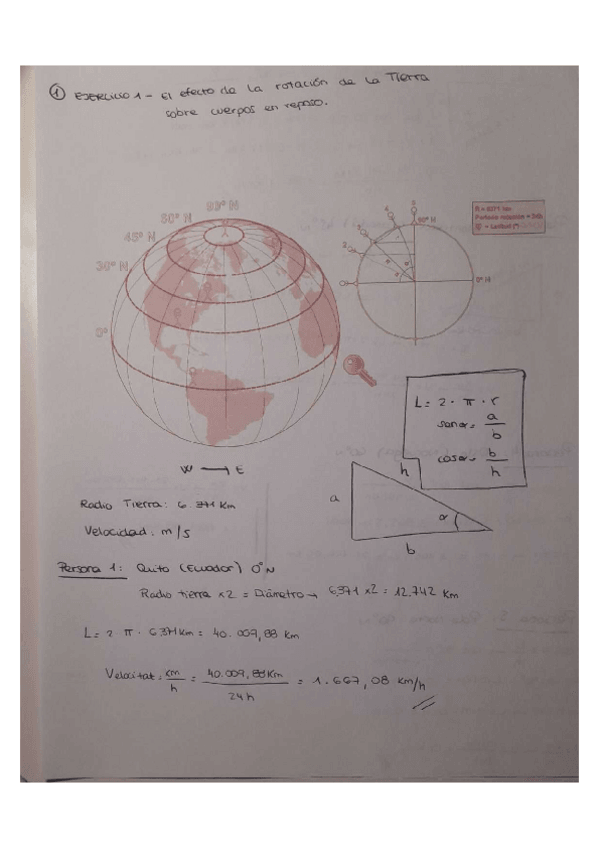 ① EJERCICIO 1 - El efecto de la rotación de la Tierra
sobre cuerpos en reposo.
90º N
60º N
45º N
30º N
0º
90º N
0º N
Periodo rotación = 24h
= Latitud (º)
L = 2 · π · r
senα = a/b
cosα = b/h
a
h
α
b
W → E
Radio Tierra: 6.371 Km
Velocidad: m/s
Persona 1: Quito (Ecuador) 0º N
Radio tierra x2 = Diámetro → 6,371 x2 = 12.742 Km
L = 2 π · 6.371 Km = 40.009,88 Km
Velocitat: Km/h = 40.009,88 Km / 24 h = 1.667,08 Km/h